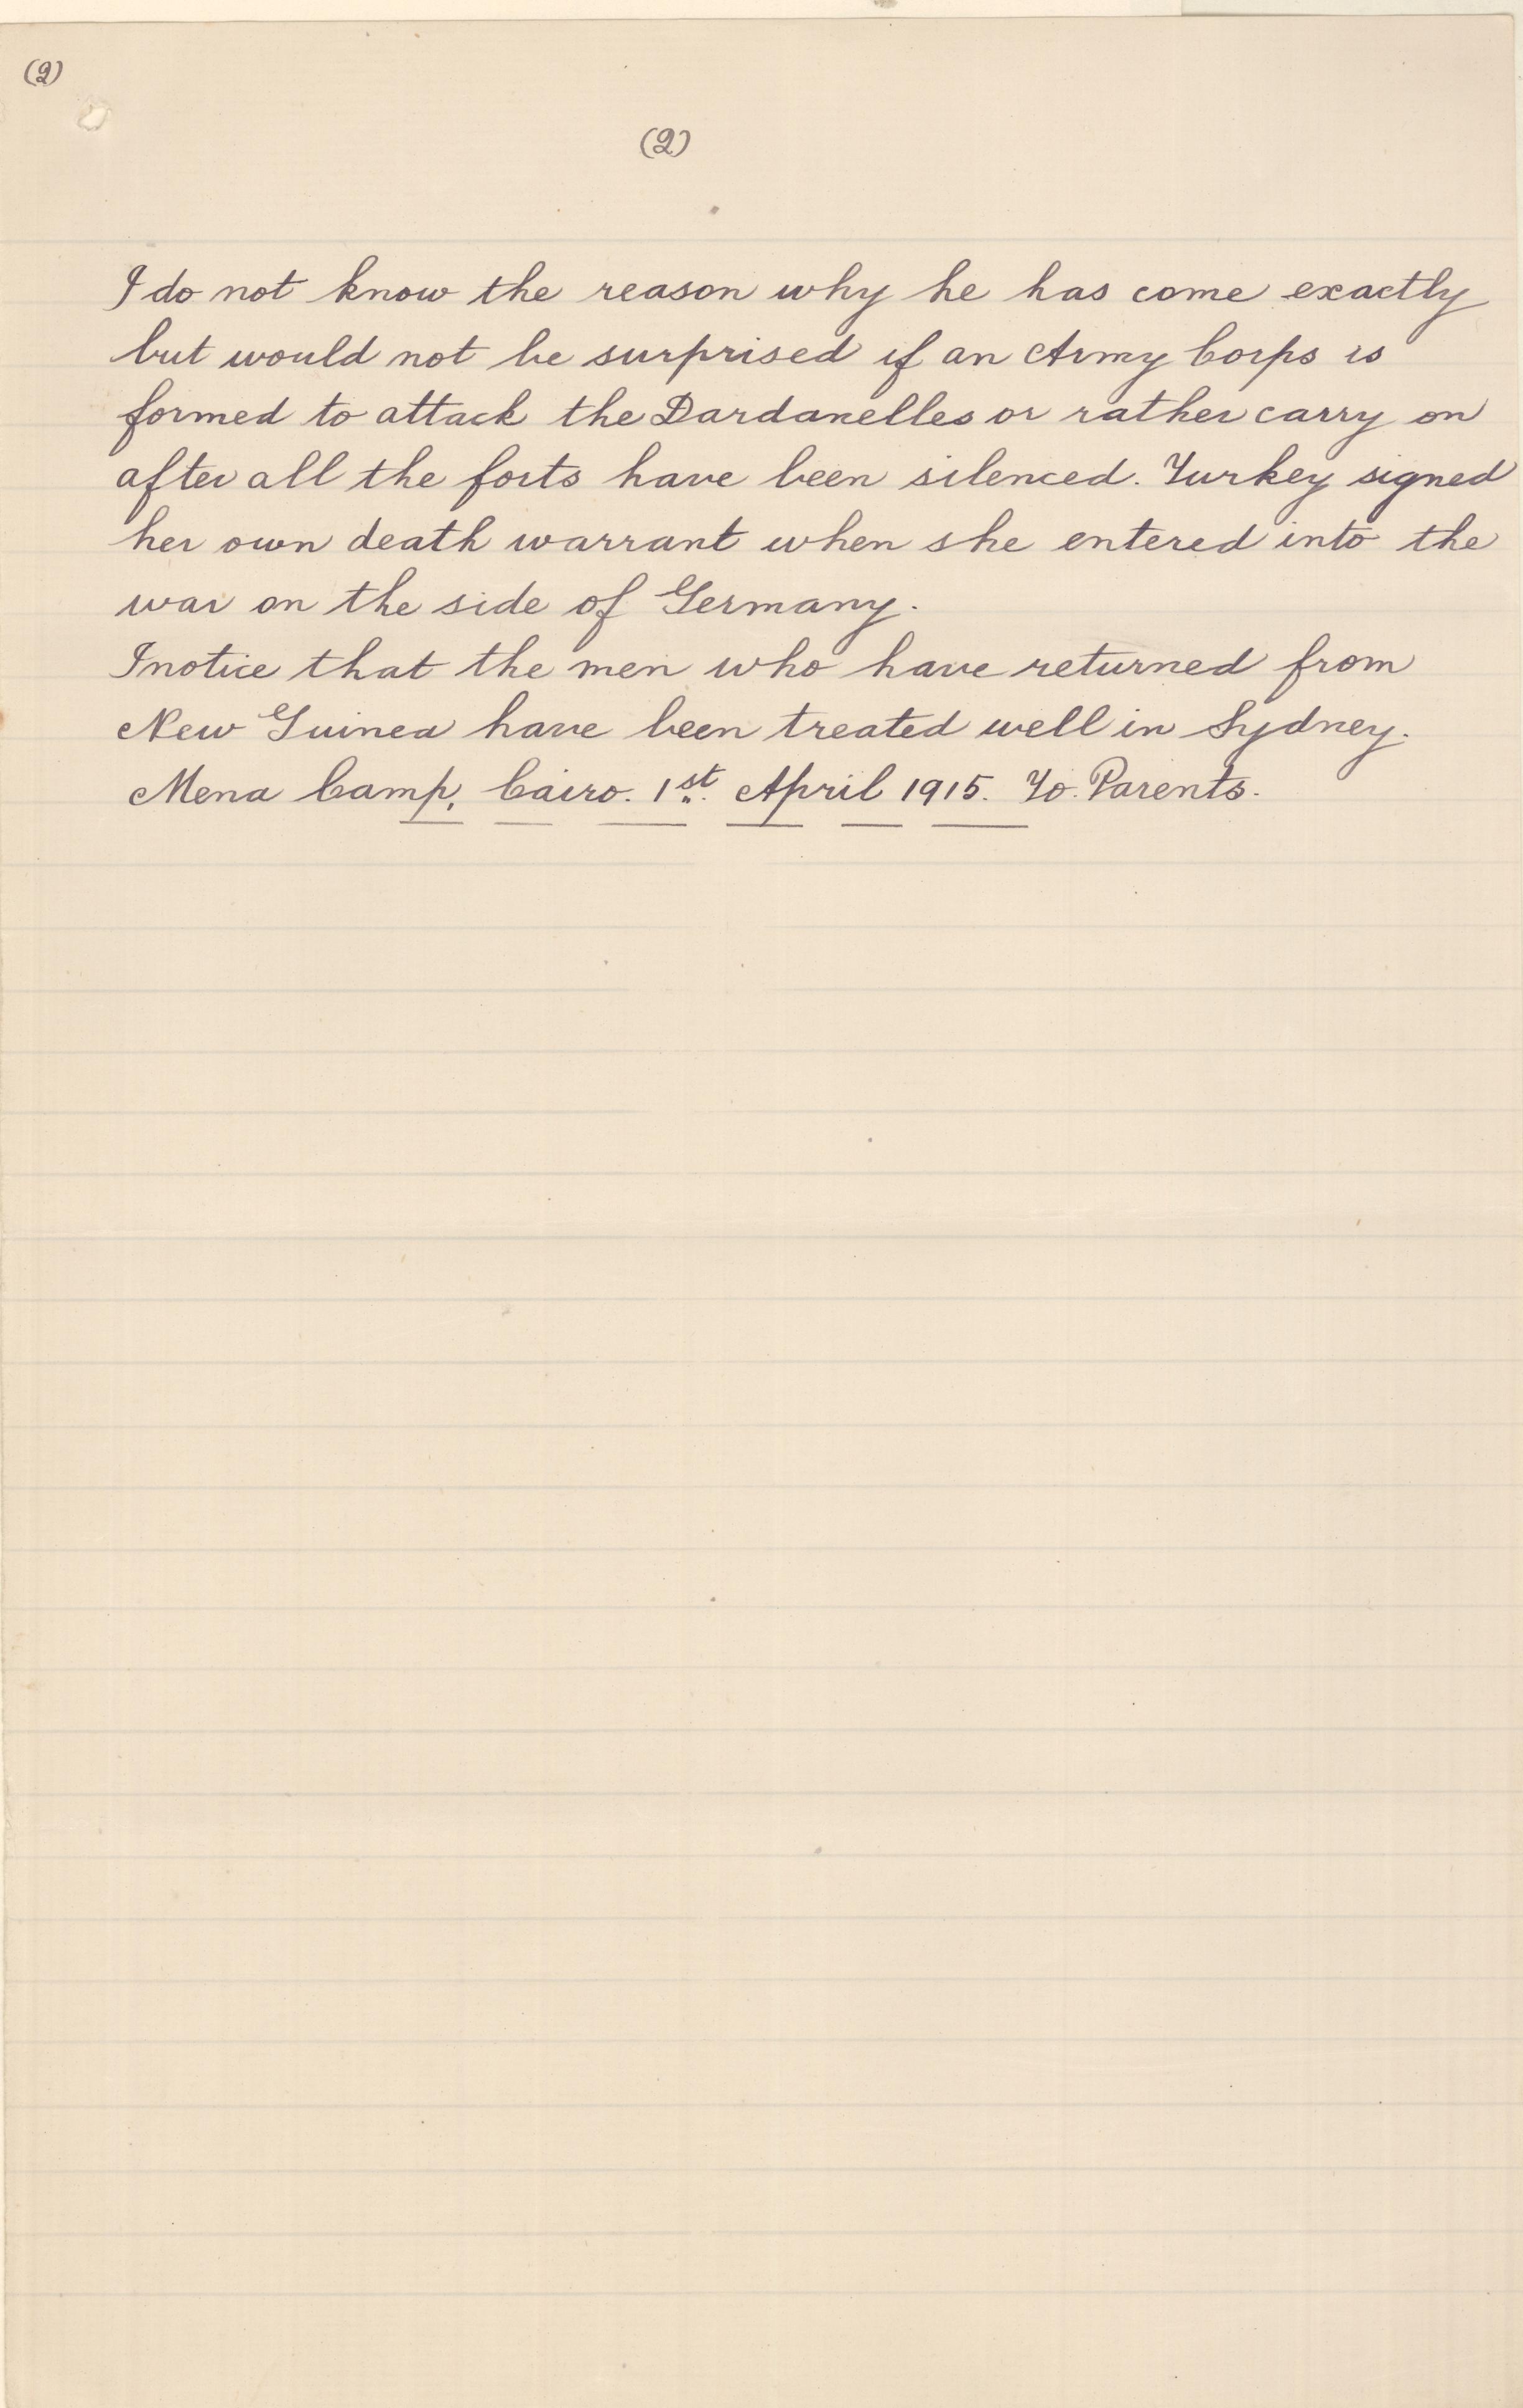 (2)
(2)
I do not know the reason why he has come exactly
but would not be surprised if an Army Corps is
formed to attack the Dardanelles or rather carry on
after all the forts have been silenced. Turkey signed
her own death warrant when she entered into the
war on the side of Germany.
I notice that the men who have returned from
New Guinea have been treated well in Sydney.
Mena Camp, Cairo. 1st. April 1915. To. Parents.